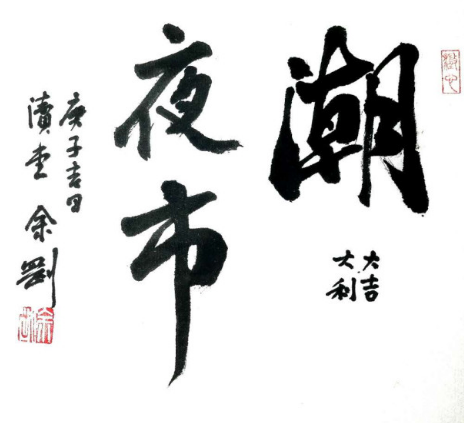 潮
大吉
大利
夜市
庚子吉日
堂 余剛